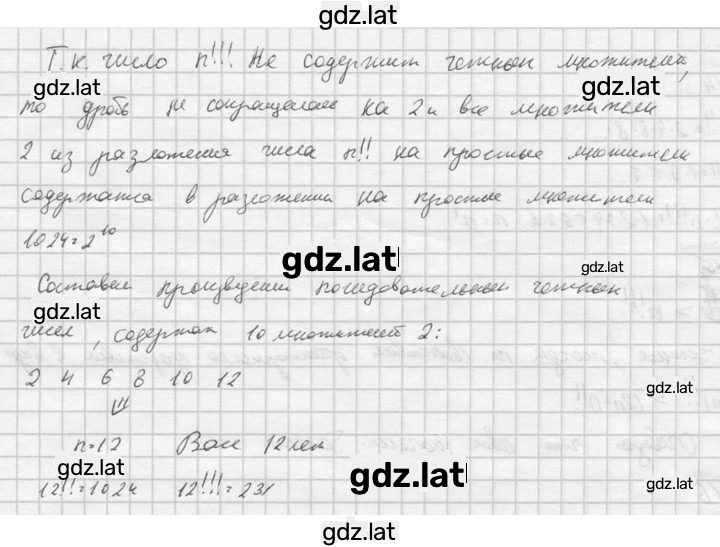 gdz.lat
Т.к. число n!!! не содержит четных множителей,
gdz.lat
gdz.lat
то дробь не сокращалась на 2 и все множители
2 из разложения числа n!! на простые множители
содержатся в разложении на простые множители
1024=2^10
gdz.lat
gdz.lat
Составим произведении последовательных четных
gdz.lat
чисел, содержащ 10 множителей 2:
2 4 6 8 10 12
gdz.lat
⇓
n=12 Ване 12 лет
gdz.lat
gdz.lat
gdz.lat
12!!=1024 12!!!=231
gdz.lat